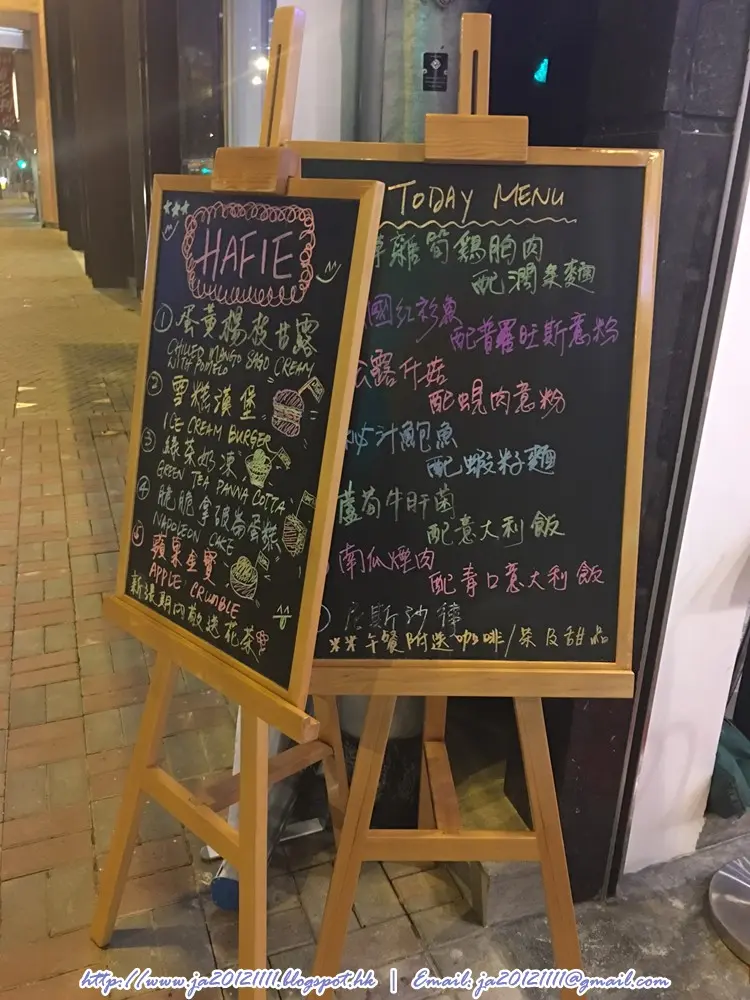 HAFIE
① 蛋黃楊枝甘露
CHILLED MANGO SAGO CREAM
WITH POMELO
② 雪糕漢堡
ICE CREAM BURGER
③ 綠茶奶凍
GREEN TEA PANNA COTTA
④ 脆脆拿破崙蛋糕
NAPOLEON CAKE
⑤ 蘋果金寶
APPLE CRUMBLE
新張期內敬送花茶
TODAY MENU
雞胸肉
配潤菜麵
國紅衫魚
配普羅旺斯意粉
露什菇
配蜆肉意粉
汁鮑魚
配蝦籽麵
蘆荀牛肝菌
配意大利飯
南瓜煙肉
配青口意大利飯
斯沙律
※※午餐附送咖啡/茶及甜品
http://www.ja20121111.blogspot.hk | Email: ja20121111@gmail.com